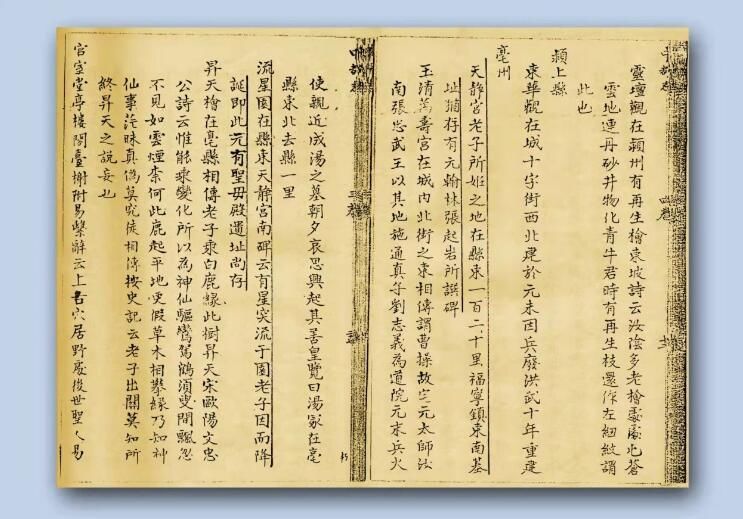 靈壇觀在潁州有再生檜東坡詩云汝陰多老檜處處屯蒼
雲地連丹砂井物化青牛君時有再生枝還作左紐紋謂
此也
潁上縣
東華觀在城十字街西北建於元末因兵廢洪武十年重建
亳州
天靜宮老子所妊之地在縣東一百二十里福寧鎮東南基
址猶存有元翰林張起岩所譔碑
玉清萬壽宮在城內北街之東相傳謂曹操故宅元太師汝
南張忠武王以其地施通真子劉志義為道院元末兵火
使親近成湯之墓朝夕哀思興起其善皇覽曰湯冢在亳
縣東北去縣一里
流星園在縣東天靜宮南碑云有星突流于園老子因而降
誕即此元有聖母殿遺址尚存
昇天檜在亳縣相傳老子乘白鹿緣此樹昇天宋歐陽文忠
公詩云惟能乘變化所以為神仙驅鸞駕鶴須臾間飄忽
不見如雲煙奈何此鹿起平地更假草木相攀緣乃知神
仙事茫昧真偽莫究徒相傳按史記云老子出關莫知所
終昇天之說妄也
宮室堂亭樓閣臺榭附易繫辭云上古穴居野處後世聖人易